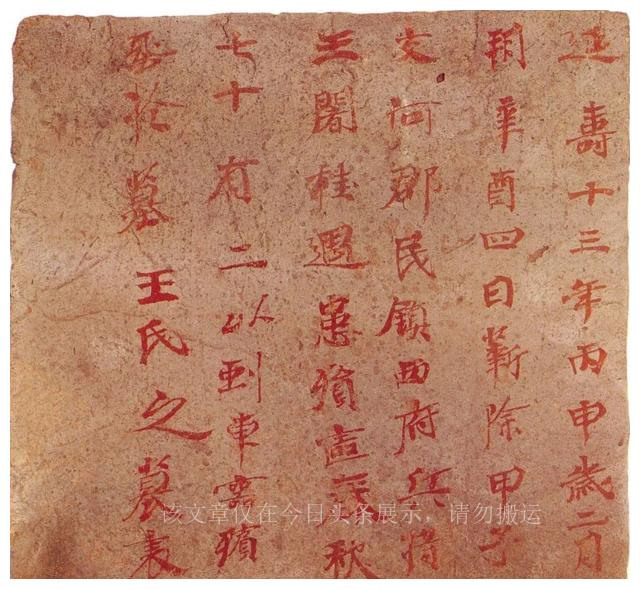 延壽十三年丙申歲二月
朔辛酉四日新除甲子
交河郡民鎮西府兵將
王闍桂遇患殞喪春秋
七十有二以到車靈殯
葬於墓王氏之墓表
该文章仅在今日头条展示，请勿搬运